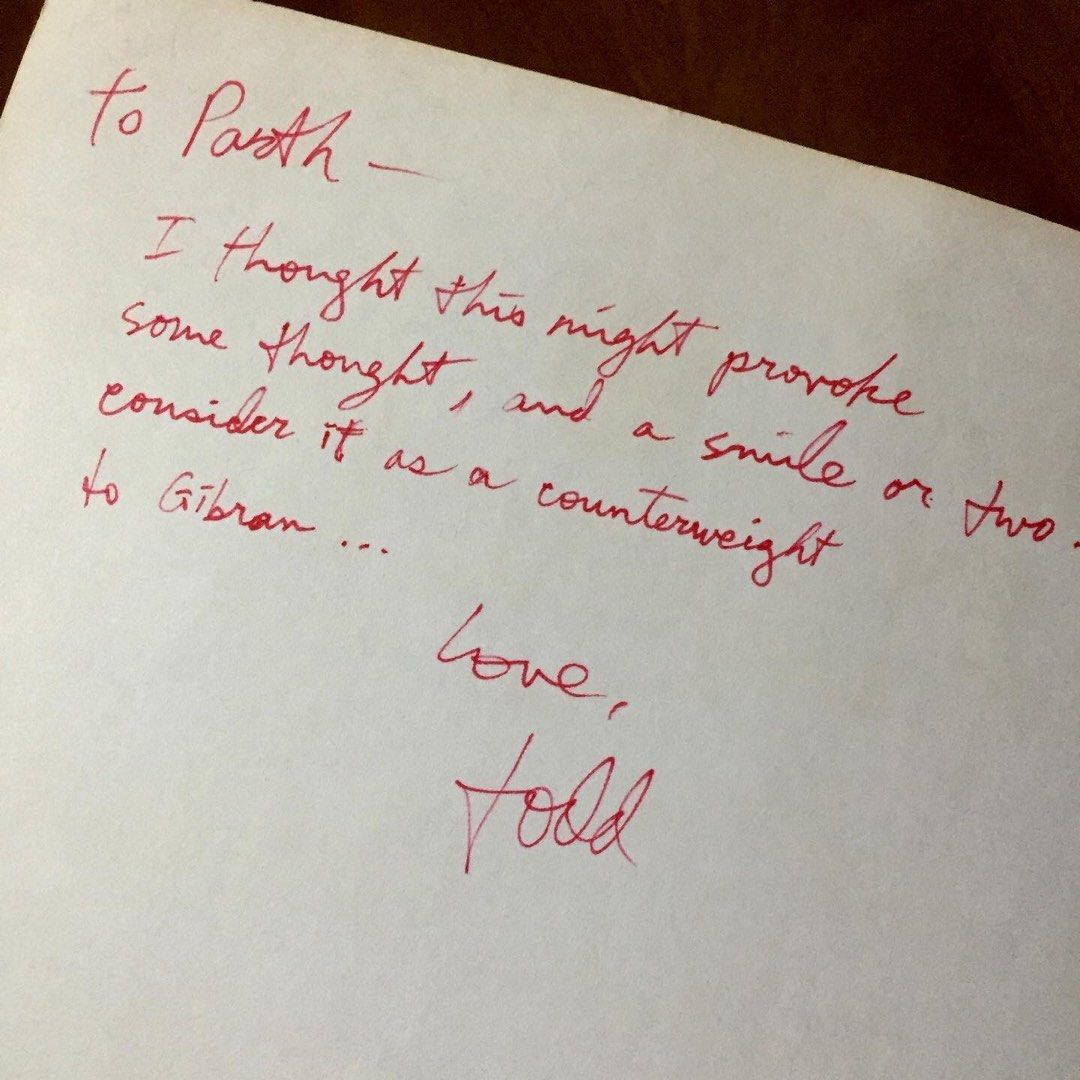 to Parth —
I thought this might provoke
some thought, and a smile or two.
consider it as a counterweight
to Gibran ...
Love,
todd